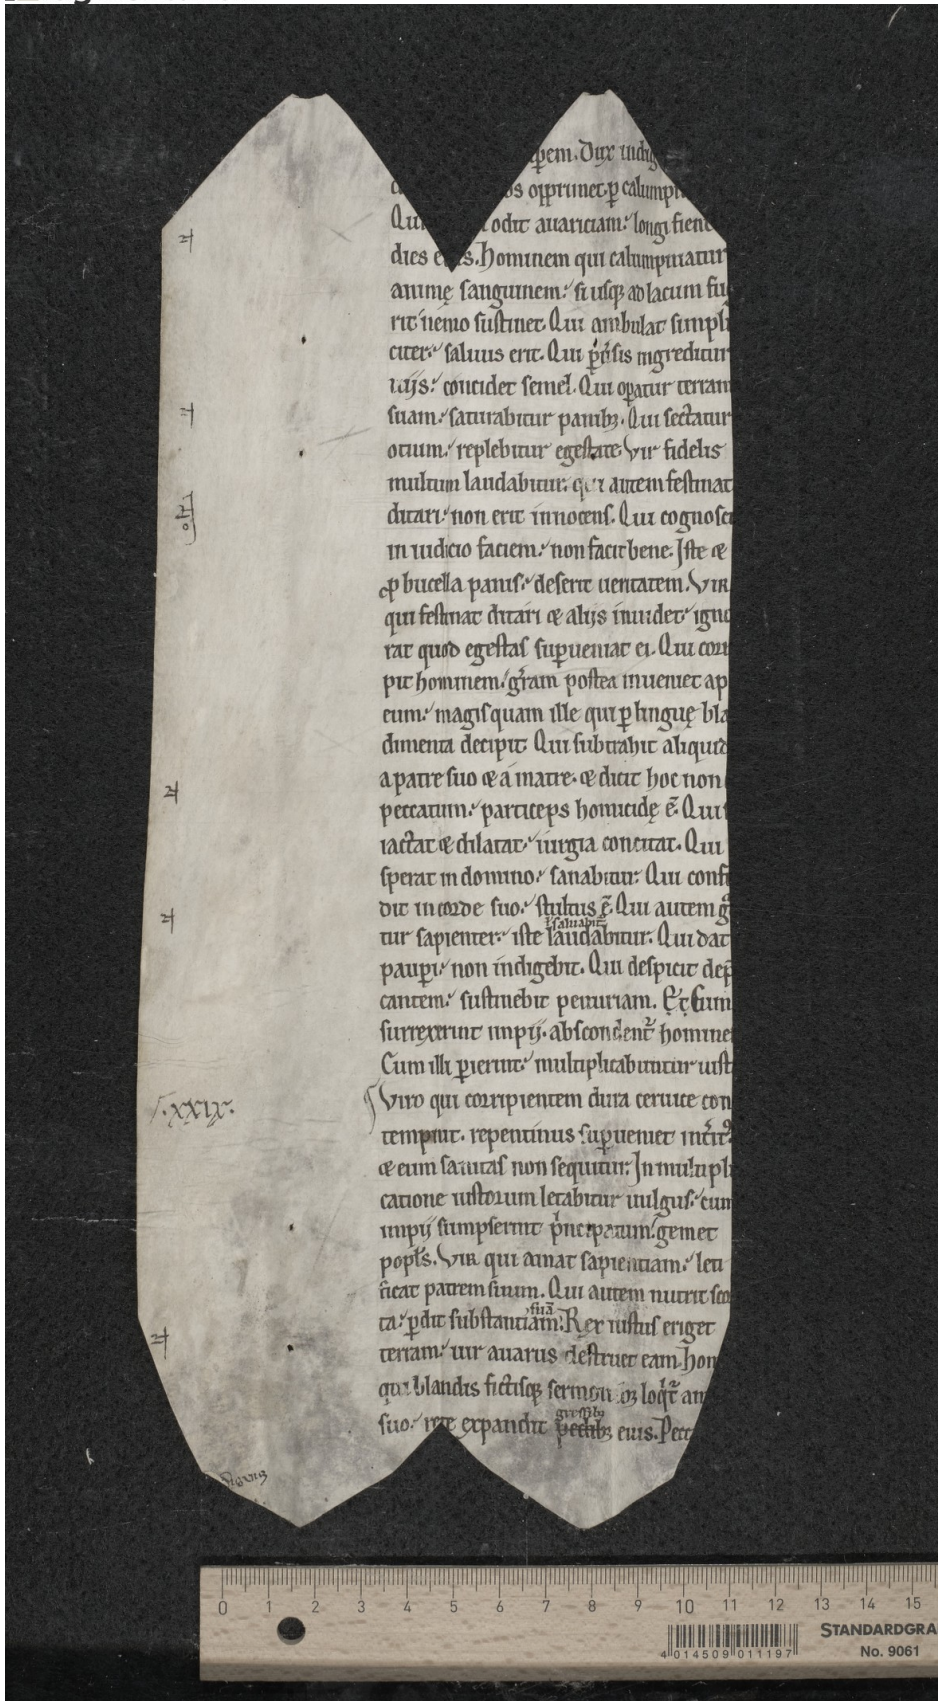 ꝑem. Dux indig
os opprimet ꝑ calumpn
Qui odit auariciam: longi fient
dies e s. Hominem qui calumpniatur
animę sanguinem: si usq; ad lacum fug
rit nemo sustinet. Qui ambulat simpli
citer: saluus erit. Qui ingreditur
uijs: concidet semel. Qui oꝑatur terram
suam: saturabitur panib;. Qui sectatur
otium: replebitur egestate. Vir fidelis
multum laudabitur: qui autem festinat
ditari: non erit innocens. Qui cognosci
in iudicio faciem: non facit bene. Iste &
ꝓ bucella panis: deserit ueritatem. Vir
qui festinat ditari & alijs inuidet: igno
rat quod egestas suꝑueniat ei. Qui corri
pit hominem: gr̄am postea inueniet ap
eum: magis quam ille qui ꝑ linguę bla
dimenta decipit. Qui subtrahit aliquid
a patre suo & a matre. & dicit hoc non
peccatum: particeps homicidę ē. Qui
iactat & dilatat: iurgia concitat. Qui
sperat in domino: sanabitur. Qui confi
dit in corde suo: stultus ē. Qui autem g̃
saluabit̃
tur sapienter: iste laudabitur. Qui dat
pauꝑi: non indigebit. Qui despicit dep̄
cantem: sustinebit penuriam. Et Cum
surrexerint impij. abscondent̃ homine
Cum illi ꝑierint: multiplicabuntur iust
.XXIX. Viro qui corripientem dura ceruice con
tempnit. repentinus suꝑueniet int̃it᷒
& eum sanitas non sequitur: In multipli
catione iustorum letabitur uulgus: cum
impij sumpserint pͥncipatum: gemet
popl̄s. Vir qui amat sapientiam: leti
ficat patrem suum. Qui autem nutrit sco
suā
ta: ꝑdit substantiam: Rex iustus eriget
terram: uir auarus destruet eam. Hom
qui blandis fictisq; sermonib; loqt̃ am
gressib;
suo: rete expandit pedib; eius. Pecc